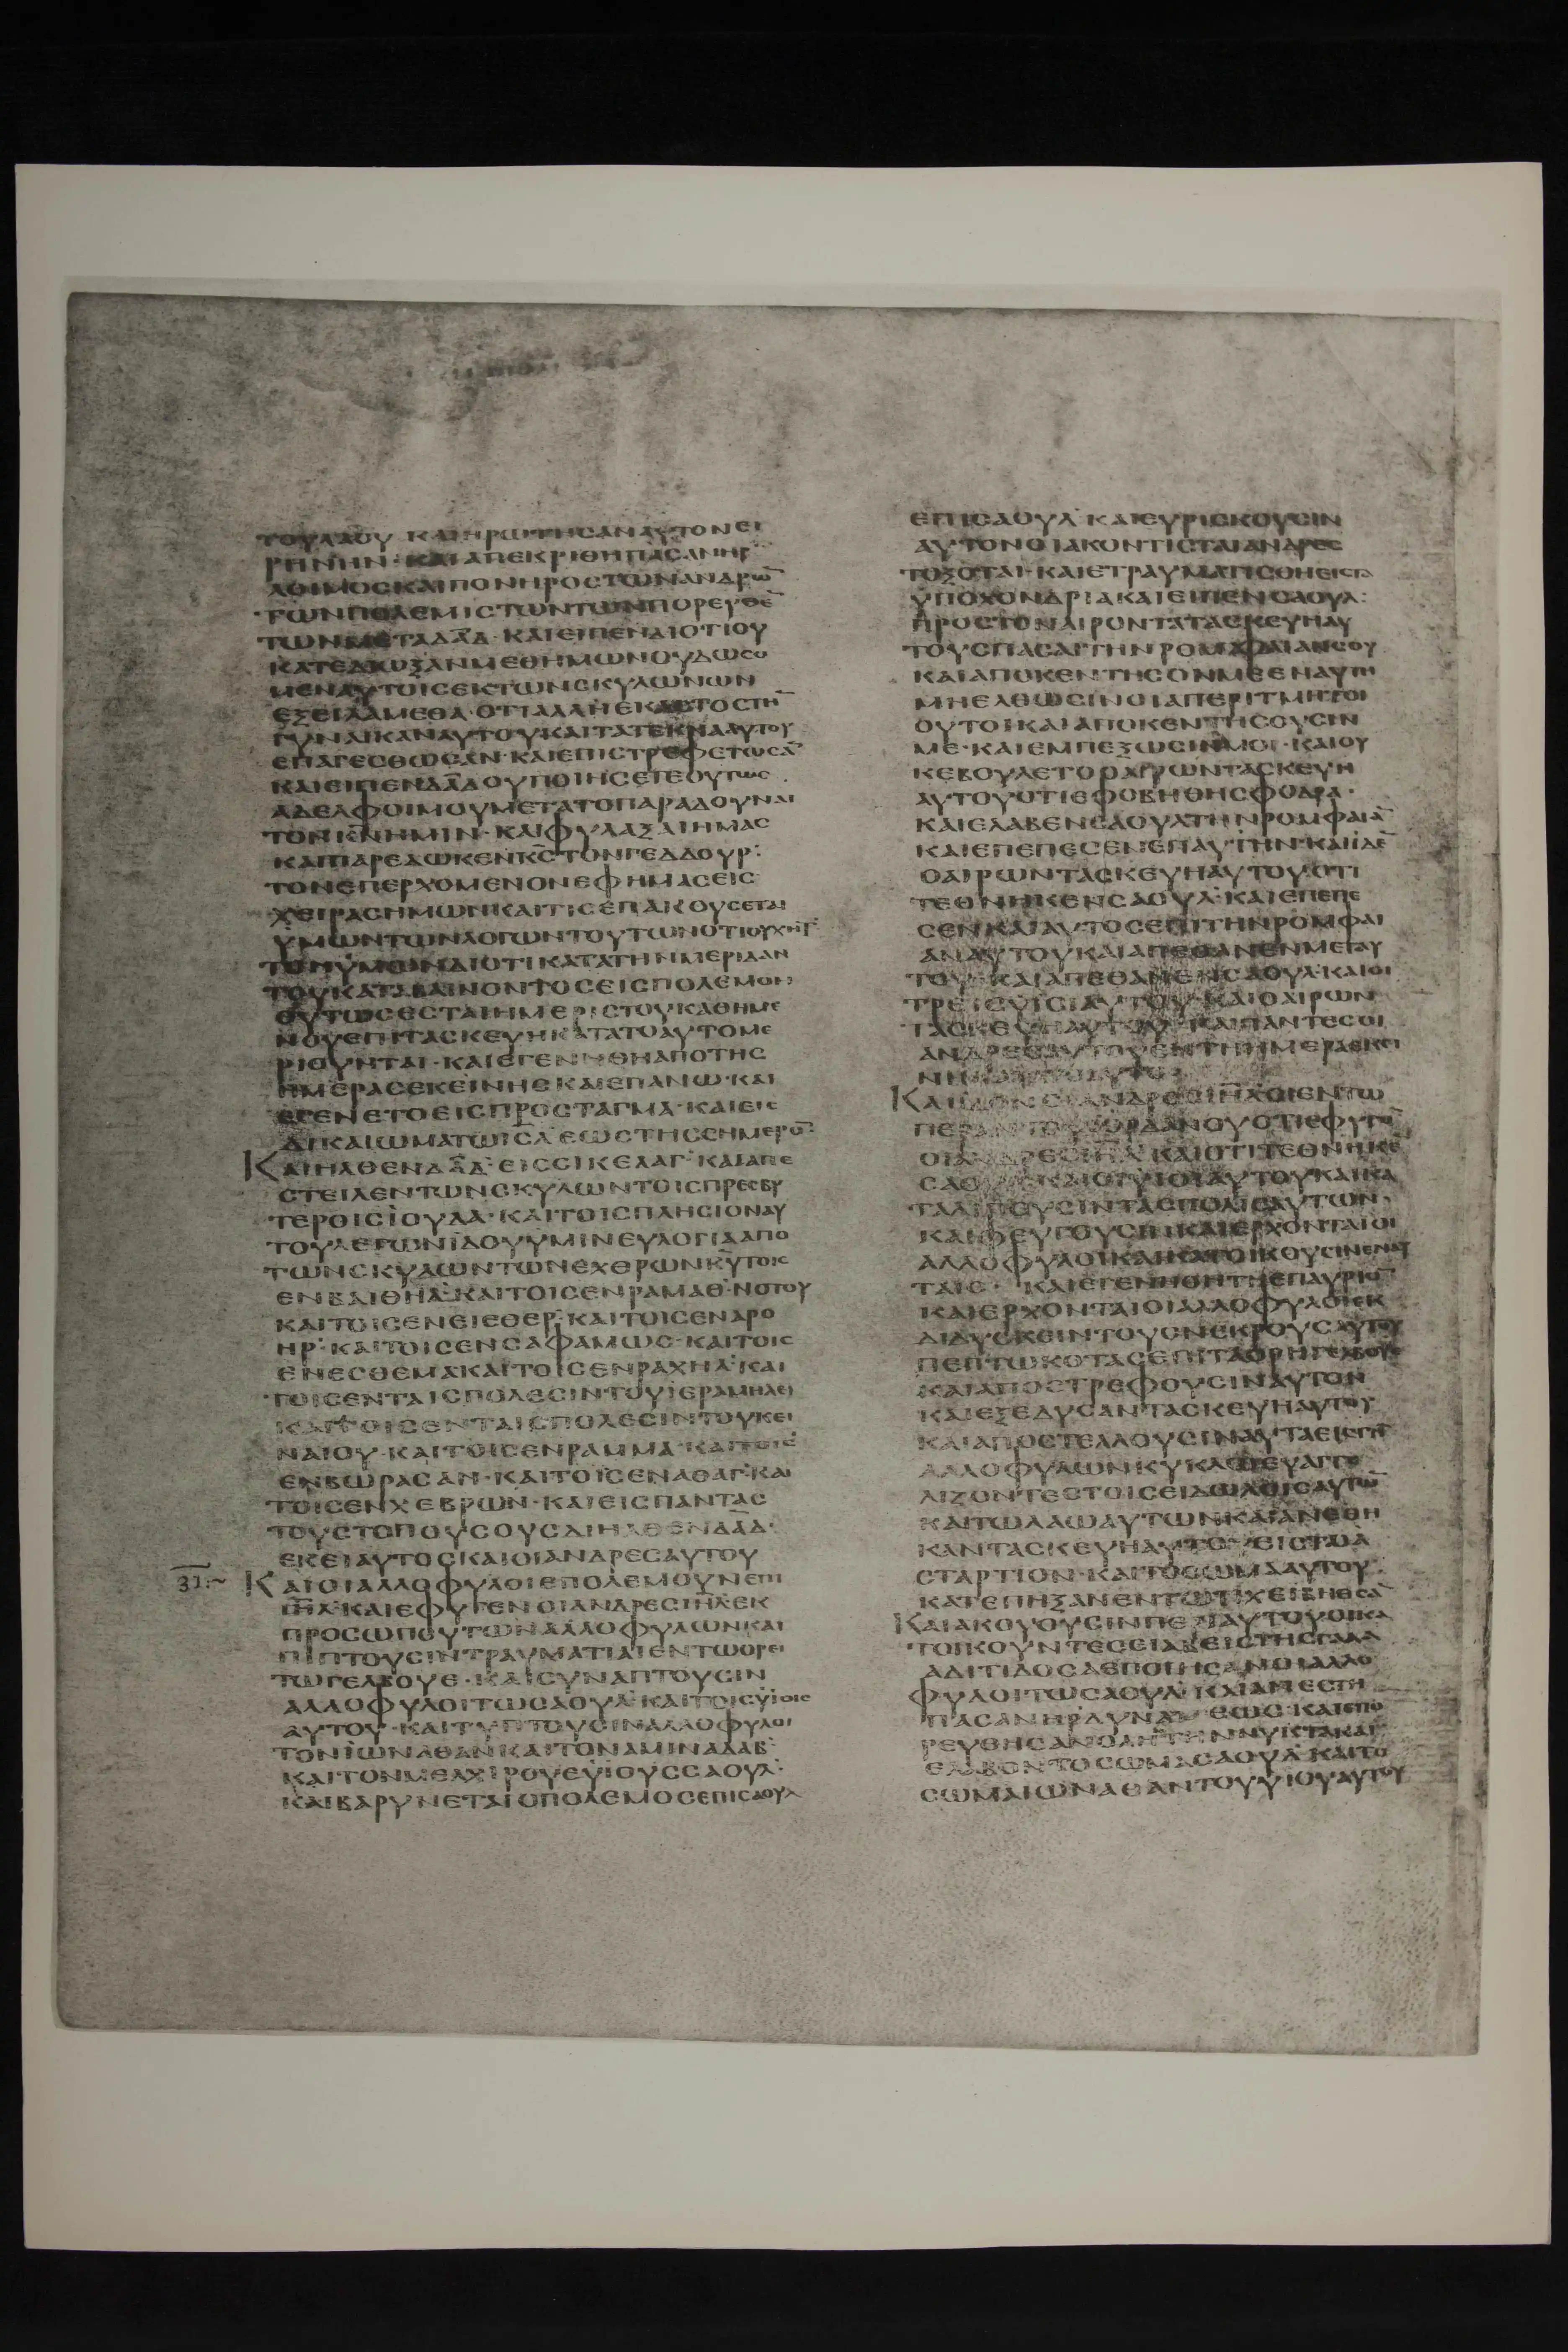 ΤΟΥΛΑΟΥ ΚΑΙΗΡΩΤΗСΑΝΑΥΤΟΝΕΙ
ΡΗΝΗΝ·ΚΑΙΑΠΕΚΡΙΘΗΠΑСΑΝΗΡ
ΛΟΙΜΟСΚΑΙΠΟΝΗΡΟСΤΩΝΑΝΔΡΩ̄
ΤΩΝΠΟΛΕΜΙСΤΩΝΤΩΝΠΟΡΕΥΘΕ̄
ΤΩΝΜΕΤΑΔΑ̅Δ·ΚΑΙΕΙΠΕΝΔΙΟΤΙΟΥ
ΚΑΤΕΔΙΩΞΑΝΜΕΘΗΜΩΝΟΥΔΩСΟ
ΜΕΝΑΥΤΟΙСΕΚΤΩΝСΚΥΛΩΝΩΝ
ΕΞΕΙΛΑΜΕΘΑ·ΟΤΙΑΛΛΗΕΚΑСΤΟСΤΗ̄
ΓΥΝΑΙΚΑΝΑΥΤΟΥΚΑΙΤΑΤΕΚΝΑΑΥΤΟΥ
ΕΠΑΓΕСΘΩСΑΝ·ΚΑΙΕΠΙСΤΡΕΦΕΤΩСᾹ
ΚΑΙΕΙΠΕΝΔΑ̅ΔΟΥΠΟΙΗСΕΤΕΟΥΤΩС
ΑΔΕΛΦΟΙΜΟΥΜΕΤΑΤΟΠΑΡΑΔΟΥΝΑΙ
ΤΟΝΚ̅Ν̅ΗΜΙΝ·ΚΑΙΦΥΛΑΞΑΙΗΜΑС
ΚΑΙΠΑΡΕΔΩΚΕΝΚ̅С̅ΤΟΝΓΕΔΔΟΥΡ·
ΤΟΝΕΠΕΡΧΟΜΕΝΟΝΕΦΗΜΑСΕΙС
ΧΕΙΡΑСΗΜΩΝΚΑΙΤΙСΕΠΑΚΟΥСΕΤΑΙ
ΥΜΩΝΤΩΝΛΟΓΩΝΤΟΥΤΩΝΟΤΙΟΥΧΗΤ
ΤΟΝΥΜΩΝΔΙΟΤΙΚΑΤΑΤΗΝΜΕΡΙΔΑΝ
ΤΟΥΚΑΤΑΒΑΙΝΟΝΤΟСΕΙСΠΟΛΕΜΟΝ
ΟΥΤΩСΕСΤΑΙΗΜΕΡΙСΤΟΥΚΑΘΗΜΕ
ΝΟΥΕΠΙΤΑСΚΕΥΗΚΑΤΑΤΟΑΥΤΟΜΕ
ΡΙΟΥΝΤΑΙ·ΚΑΙΕΓΕΝΝΗΘΗΑΠΟΤΗС
ΗΜΕΡΑСΕΚΕΙΝΗСΚΑΙΕΠΑΝΩ·ΚΑΙ
ΕΓΕΝΕΤΟΕΙСΠΡΟСΤΑΓΜΑ·ΚΑΙΕΙС
ΔΙΚΑΙΩΜΑΤΩΙС̅Λ̅ΕΩСΤΗССΗΜΕΡΟ̄
ΚΑΙΗΛΘΕΝΔΑ̅Δ·ΕΙССΙΚΕΛΑΓ·ΚΑΙΑΠΕ
СΤΕΙΛΕΝΤΩΝСΚΥΛΩΝΤΟΙСΠΡΕСΒΥ
ΤΕΡΟΙСΙΟΥΔΑ·ΚΑΙΤΟΙСΠΛΗСΙΟΝΑΥ
ΤΟΥΛΕΓΩΝΙΔΟΥΥΜΙΝΕΥΛΟΓΙΑΑΠΟ
ΤΩΝСΚΥΛΩΝΤΩΝΕΧΘΡΩΝΚ̅Υ̅ΤΟΙС
ΕΝΒΑΙΘΗΛ·ΚΑΙΤΟΙСΕΝΡΑΜΑΘ·ΝΟΤΟΥ
ΚΑΙΤΟΙСΕΝΕΙΕΘΕΡ·ΚΑΙΤΟΙСΕΝΑΡΟ
ΗΡ·ΚΑΙΤΟΙСΕΝСΑΦΑΜΩС·ΚΑΙΤΟΙС
ΕΝΕСΘΕΜΑΚΑΙΤΟΙСΕΝΡΑΧΗΛ·ΚΑΙ
ΤΟΙСΕΝΤΑΙСΠΟΛΕСΙΝΤΟΥΙΕΡΑΜΗΛΕΙ
ΚΑΙΤΟΙСΕΝΤΑΙСΠΟΛΕСΙΝΤΟΥΚΕΙ
ΝΑΙΟΥ·ΚΑΙΤΟΙСΕΝΡΑΜΜΑ·ΚΑΙΤΟΙС
ΕΝΒΩΡΑСΑΝ·ΚΑΙΤΟΙСΕΝΑΘΑΓ·ΚΑΙ
ΤΟΙСΕΝΧΕΒΡΩΝ·ΚΑΙΕΙСΠΑΝΤΑС
ΤΟΥСΤΟΠΟΥСΟΥСΔΙΗΛΘΕΝΔΑ̅Δ·
ΕΚΕΙΑΥΤΟСΚΑΙΟΙΑΝΔΡΕСΑΥΤΟΥ
31 ΚΑΙΟΙΑΛΛΟΦΥΛΟΙΕΠΟΛΕΜΟΥΝΕΠΙ
Ι̅Η̅Λ̅·ΚΑΙΕΦΥΓΕΝΟΙΑΝΔΡΕСΙ̅Η̅Λ̅ΕΚ
ΠΡΟСΩΠΟΥΤΩΝΑΛΛΟΦΥΛΩΝΚΑΙ
ΠΙΠΤΟΥСΙΝΤΡΑΥΜΑΤΙΑΙΕΝΤΩΟΡΕΙ
ΤΩΓΕΛΒΟΥΕ·ΚΑΙСΥΝΑΠΤΟΥСΙΝ
ΑΛΛΟΦΥΛΟΙΤΩСΑΟΥΛ·ΚΑΙΤΟΙСΥΙΟΙС
ΑΥΤΟΥ·ΚΑΙΤΥΠΤΟΥСΙΝΑΛΛΟΦΥΛΟΙ
ΤΟΝΙΩΝΑΘΑΝΚΑΙΤΟΝΑΜΙΝΑΔΑΒ·
ΚΑΙΤΟΝΜΕΛΧΙΡΟΥΕΥΙΟΥССΑΟΥΛ·
ΚΑΙΒΑΡΥΝΕΤΑΙΟΠΟΛΕΜΟСΕΠΙСΑΟΥΛ
ΕΠΙСΑΟΥΛ ΚΑΙΕΥΡΙСΚΟΥСΙΝ
ΑΥΤΟΝΟΙΑΚΟΝΤΙСΤΑΙΑΝΔΡΕС
ΤΟΞΟΤΑΙ·ΚΑΙΕΤΡΑΥΜΑΤΙСΘΗΕΙСΤΑ
ΥΠΟΧΟΝΔΡΙΑΚΑΙΕΙΠΕΝСΑΟΥΛ:
ΠΡΟСΤΟΝΑΙΡΟΝΤΑΤΑСΚΕΥΗΑΥ
ΤΟΥСΠΑСΑΙΤΗΝΡΟΜΦΑΙΑΝСΟΥ
ΚΑΙΑΠΟΚΕΝΤΗСΟΝΜΕΕΝΑΥΤΗ
ΜΗΕΛΘΩСΙΝΟΙΑΠΕΡΙΤΜΗΤΟΙ
ΟΥΤΟΙΚΑΙΑΠΟΚΕΝΤΗСΟΥСΙΝ
ΜΕ·ΚΑΙΕΜΠΕΞΩСΙΝΜΟΙ·ΚΑΙΟΥ
ΚΕΒΟΥΛΕΤΟΟΑΙΡΩΝΤΑСΚΕΥΗ
ΑΥΤΟΥΟΤΙΕΦΟΒΗΘΗСΦΟΔΡΑ·
ΚΑΙΕΛΑΒΕΝСΑΟΥΛΤΗΝΡΟΜΦΑΙᾹ
ΚΑΙΕΠΕΠΕСΕΝΕΠΑΥΤΗΝ·ΚΑΙΙΔΕ̄
ΟΑΙΡΩΝΤΑСΚΕΥΗΑΥΤΟΥΟΤΙ
ΤΕΘΝΗΚΕΝСΑΟΥΛ·ΚΑΙΕΠΕΠΕ
СΕΝΚΑΙΑΥΤΟСΕΠΙΤΗΝΡΟΜΦΑΙ
ΑΝΑΥΤΟΥΚΑΙΑΠΕΘΑΝΕΝΜΕΤΑΥ
ΤΟΥ·ΚΑΙΑΠΕΘΑΝΕΝСΑΟΥΛ·ΚΑΙΟΙ
ΤΡΕΙСΥΙΟΙΑΥΤΟΥ·ΚΑΙΟΑΙΡΩΝ
ΤΑСΚΕΥΗΑΥΤΟΥ ΚΑΙΠΑΝΤΕСΟΙ
ΑΝΔΡΕСΑΥΤΟΥΕΝΤΗΗΜΕΡΑΕΚΕΙ
ΝΗ
ΚΑΙΙΔΟΝΟΙΑΝΔΡΕСΙ̅Η̅Λ̅ΟΙΕΝΤΩ
ΠΕΡΑΝΤΟΥΙΟΡΔΑΝΟΥΟΤΙΕΦΥΓΟ̄
ΟΙΑΝΔΡΕСΙ̅Η̅Λ̅·ΚΑΙΟΤΙΤΕΘΝΗΚΕ
СΑΟΥΛΚΑΙΟΙΥΙΟΙΑΥΤΟΥΚΑΙΚΑ
ΤΑΛΙΠΟΥСΙΝΤΑСΠΟΛΙСΑΥΤΩΝ·
ΚΑΙΦΕΥΓΟΥСΙΝΚΑΙΕΡΧΟΝΤΑΙΟΙ
ΑΛΛΟΦΥΛΟΙΚΑΙΚΑΤΟΙΚΟΥСΙΝΕΝΑΥ
ΤΑΙС· ΚΑΙΕΓΕΝΗΘΗΤΗΕΠΑΥΡΙΟ̄
ΚΑΙΕΡΧΟΝΤΑΙΟΙΑΛΛΟΦΥΛΟΙΕΚ
ΔΙΔΥСΚΕΙΝΤΟΥСΝΕΚΡΟΥС
ΠΕΠΤΩΚΟΤΑСΕΠΙΤΑΟΡΗΓΕΛΒΟΥΕ
ΚΑΙΑΠΟСΤΡΕΦΟΥСΙΝΑΥΤΟΝ
ΚΑΙΕΞΕΔΥСΑΝΤΑСΚΕΥΗΑΥΤΟΥ
ΚΑΙΑΠΟСΤΕΛΛΟΥСΙΝΑΥΤΑΕΙСΓΗ̄
ΑΛΛΟΦΥΛΩΝΚΥΚΛΩΕΥΑΓΓΕ
ΛΙΖΟΝΤΕСΤΟΙСΕΙΔΩΛΟΙСΑΥΤΩ̄
ΚΑΙΤΩΛΑΩΑΥΤΩΝΚΑΙΑΝΕΘΗ
ΚΑΝΤΑСΚΕΥΗΑΥΤΟΥΕΙСΤΟΑ
СΤΑΡΤΙΟΝ·ΚΑΙΤΟСΩΜΑΑΥΤΟΥ
ΚΑΤΕΠΗΞΑΝΕΝΤΩΤΙΧΕΙΒΗΘСᾹ
ΚΑΙΑΚΟΥΟΥСΙΝΠΕΡΙΑΥΤΟΥΟΙΚΑ
ΤΟΙΚΟΥΝΤΕСΕΙΑΒΕΙСΤΗСΓΑΛΑ
ΑΔΙΤΙΔΟСΑΕΠΟΙΗСΑΝΟΙΑΛΛΟ
ΦΥΛΟΙΤΩСΑΟΥΛ·ΚΑΙΑΝΕСΤΗ
ΠΑСΑΝΗΡΔΥΝΑΜΕΩС·ΚΑΙΕΠΟ
ΡΕΥΘΗСΑΝΟΛΗΤΗΝΝΥΚΤΑΚΑΙ
ΕΛΑΒΟΝΤΟСΩΜΑСΑΟΥΛ·ΚΑΙΤΟ
СΩΜΑΙΩΝΑΘΑΝΤΟΥΥΙΟΥΑΥΤΟΥ